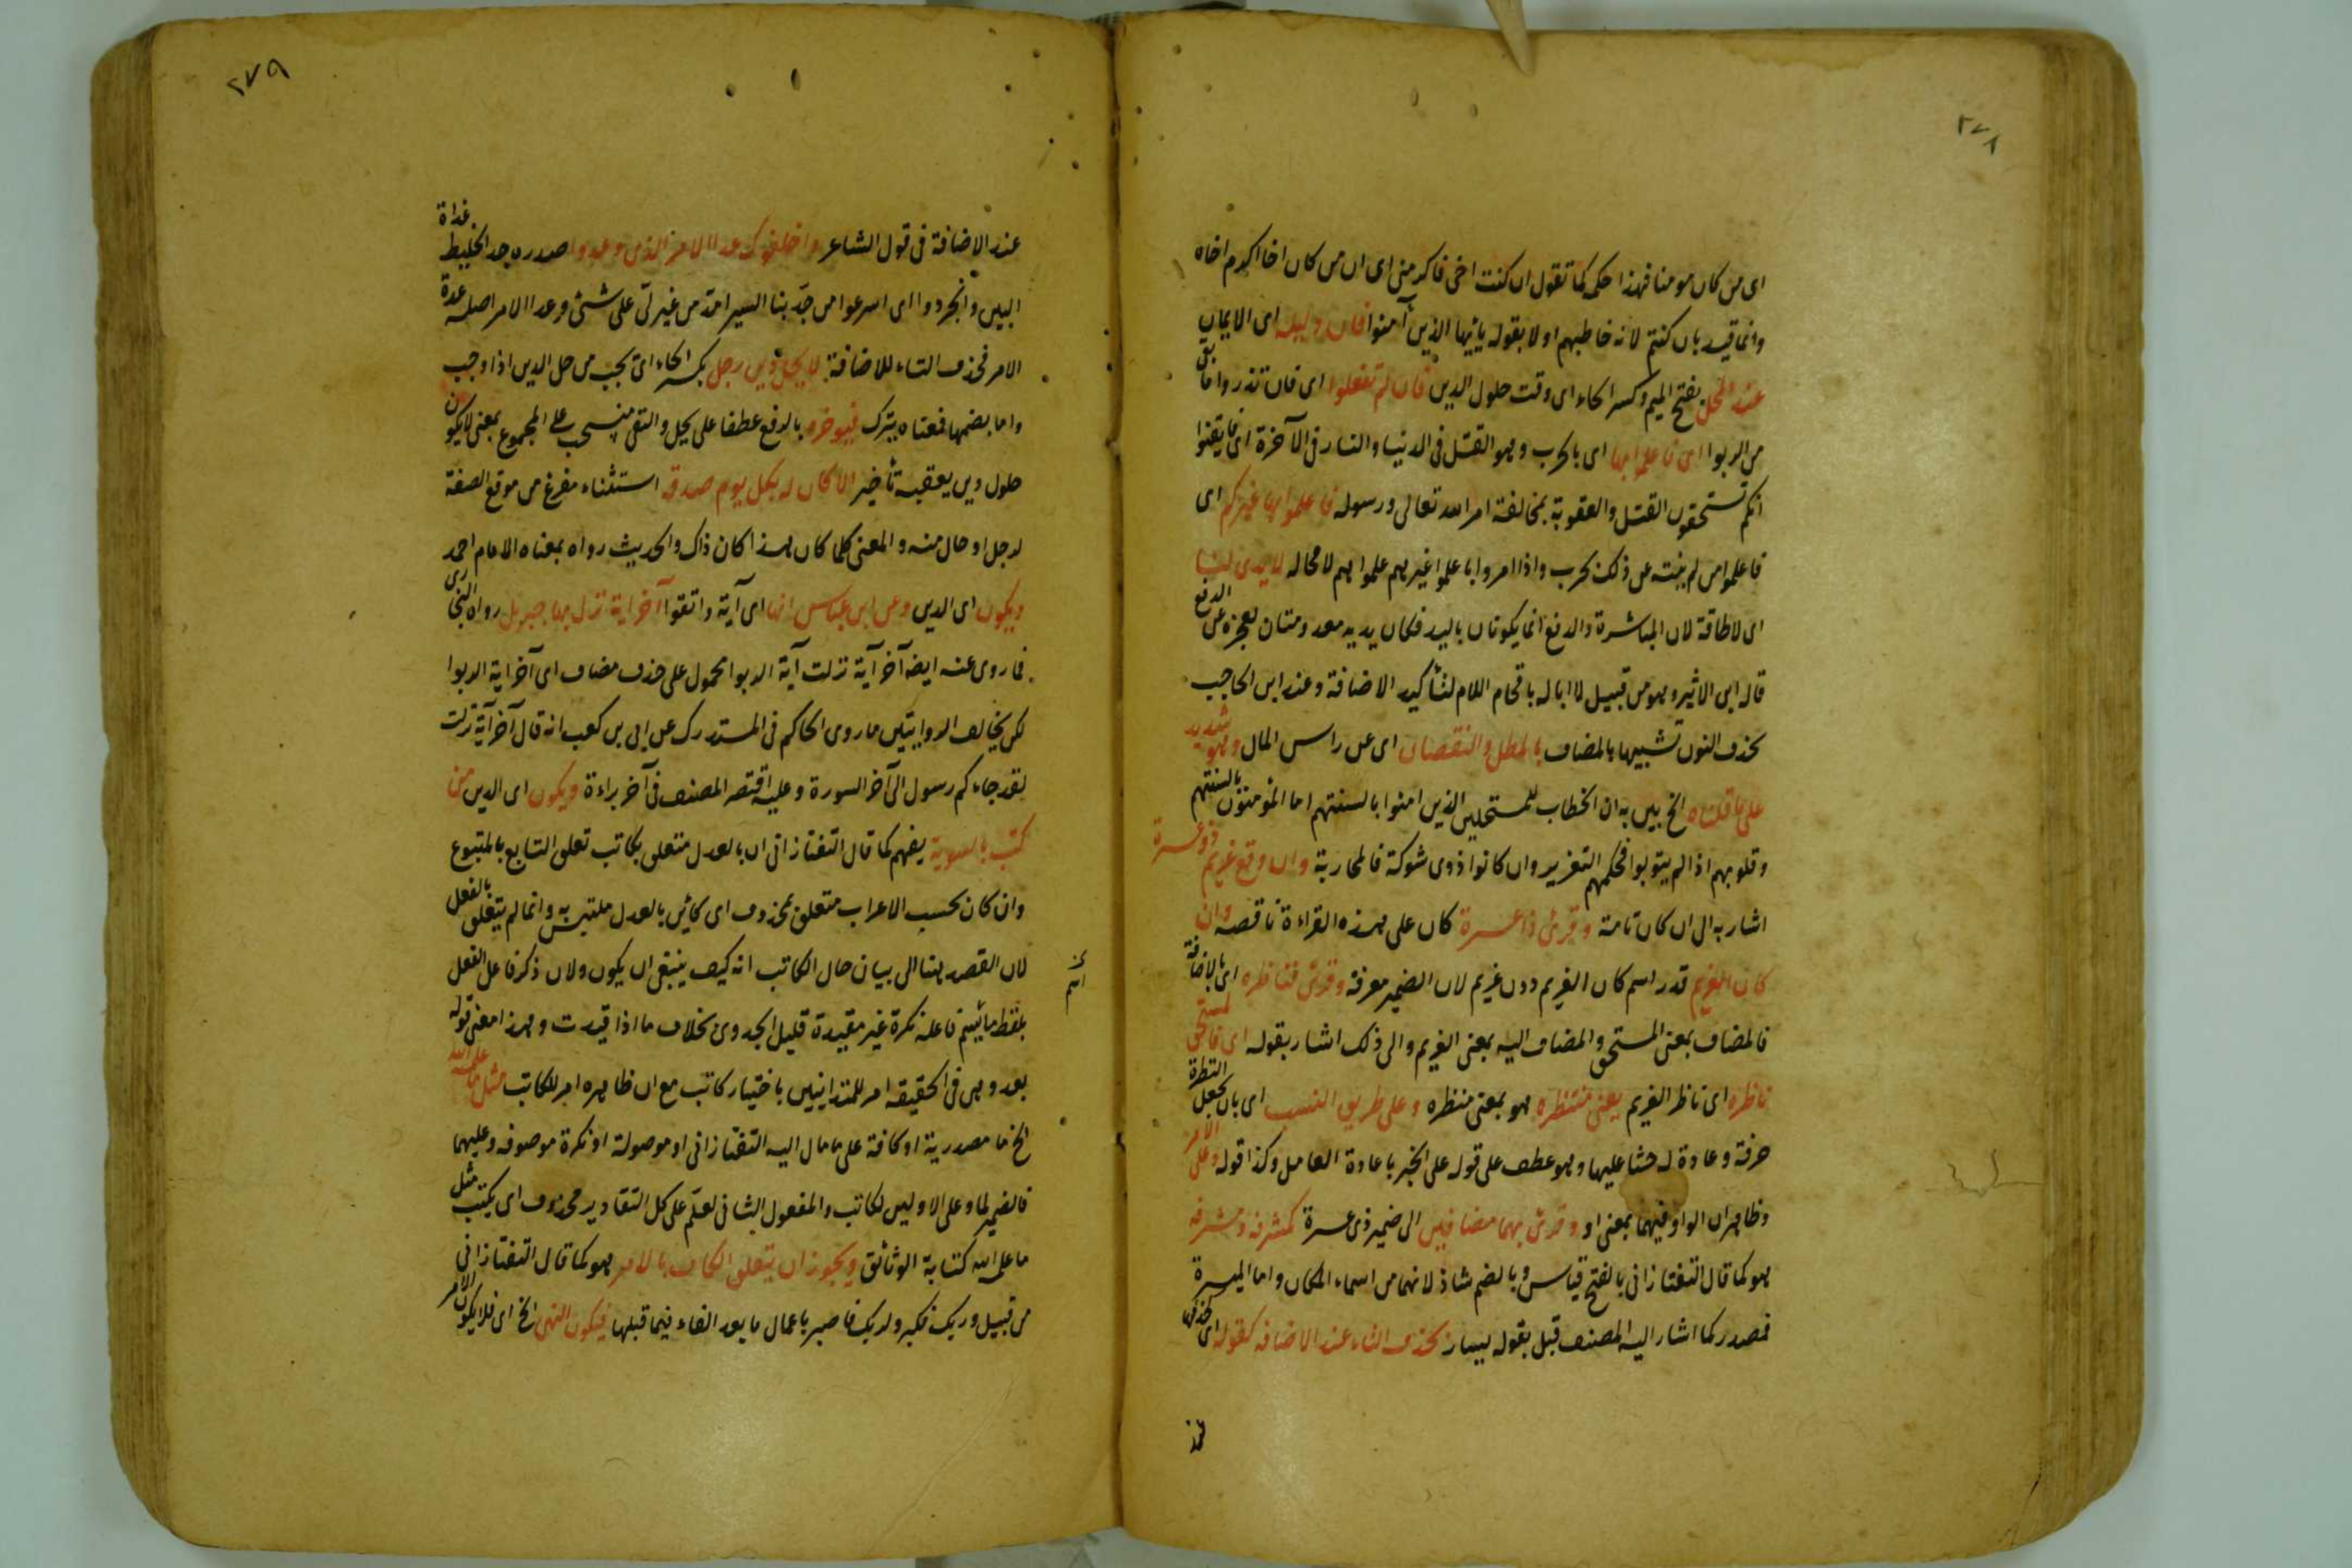 ٢٧٨
اى من كان مومنا فهذا حكمه كما تقول ان كنت اخى فاكرمنى اى ان من كان اخا اكرم اخاه
وانما قيد بان كنتم لانه خاطبهم اولا بقوله يا ايها الذين آمنوا فان دليله اى الايمان
عند المحل بفتح الميم وكسر الحاء اى وقت حلول الدين فان لم تفعلوا اى فان تذروا ما بقى
من الربوا اى فاعلموا بها اى بالحرب وهو القتل فى الدنيا والنار فى الآخرة اى فايقنوا
انكم تستحقون القتل والعقوبة بمخالفة امر الله تعالى ورسوله فاعلموا بها غيركم اى
فاعلموا من لم ينته عن ذلك بحرب واذا امروا باعلموا غيرهم علموا هم لا محاله لا يدى لنا
اى لا طاقة لان المباشرة والدفع انما يكونان باليد فكان يديه معدومتان لعجزه عن الدفع
قاله ابن الاثير وهو من قبيل لا ابا له باقحام اللام لتأكيد الاضافة وعند ابن الحاجب
بحذف النون تشبيها بالمضاف بالمطل والنقصان اى عن راس المال وهو شديد
على ما قلناه الخ بين به ان الخطاب للمستحلين الذين امنوا بالسنتهم اما المؤمنون بالسنتهم
وقلوبهم اذا لم يتوبوا فحكمهم التعزير وان كانوا ذوى شوكة فالمحاربة وان وقع غريم ذو عسرة
اشار به الى ان كان تامة وقرئ ذا عسرة كان على هذه القراءة ناقصه وان
كان الغريم قدر اسم كان الغريم دون غريم لان الضمير معرفة وقرئ فناظره اى بالاضافة
فالمضاف بمعنى المستحق والمضاف اليه بمعنى الغريم والى ذلك اشار بقوله اى فالمستحق
ناظره اى ناظر الغريم بمعنى منتظره هو بمعنى منظره وعلى طريق النسب اى بان يجعل النظرة
حرفة وعادة له حثا عليها وهو عطف على قوله على الخبر باعادة العامل وكذا قوله وعلى الامر
وظاهر ان الواو فيهما بمعنى او وقرئ بهما مضافين الى ضمير ذى عسرة كمشرقه ومشرقه
هو كما قال التفتازانى بالفتح قياس وبالضم شاذ لانهما من اسماء المكان واما الميسرة
فمصدر كما اشار اليه المصنف قبل بقوله يسار بحذف التاء عند الاضافه كقوله اى كحذفها
عند
٢٧٩
عند الاضافة فى قول الشاعر واخلفوك عدا الامر الذى وعدوا صدره جد الخليط غداة
البين وانجردوا اى اسرعوا من جد بنا السير امتد من غير لى على شئ وعدا الامر اصله عدة
الامر فحذف التاء للاضافة لا يحل دين رجل بكسر الحاء اى يجب من حل الدين اذا وجب
واما بضمها فمعناه ينزل فيؤخره بالرفع عطفا على يحل والنفى منسحب على المجموع بمعنى لا يكون
حلول دين يعقبه تأخير الا كان له بكل يوم صدقه استثناء مفرغ من موقع الصفة
لرجل او حال منه والمعنى كلما كان هذا كان ذاك والحديث رواه بمعناه الامام احمد
ويكون اى الدين وعن ابن عباس انها اى آية واتقوا آخر اية نزل بها جبريل رواه البخارى
فما روى عنه ايضا آخر آية نزلت آية الربوا محمول على حذف مضاف اى آخر اية الربوا
لكن يخالف الروايتين ما روى الحاكم فى المستدرك عن ابى بن كعب انه قال آخر آية نزلت
لقد جاءكم رسول الى آخر السورة وعليه اقتصر المصنف فى آخر براءة ويكون اى الدين
كتب بالسوية يفهم كما قال التفتازانى ان بالعدل متعلق بكاتب تعلق التابع بالمتبوع
وان كان بحسب الاعراب متعلق بمحذوف اى كائن بالعدل ملتبس به وانما لم يتعلق بالفعل
لان القصد هنا الى بيان حال الكاتب انه كيف ينبغى ان يكون ولان ذكر فاعل الفعل
بلفظ فاعله نكرة غير مقيدة قليل الجدوى بخلاف ما اذا قيدت وهذا معنى قوله
بعد وهى فى الحقيقة امر للمتداينين باختيار كاتب مع ان ظاهره امر للكاتب مثل ما علمه الله
الخ ما مصدرية او كافة على ما مال اليه التفتازانى او موصولة او نكرة موصوفه وعليهما
فالضمير لما وعلى الاولين لكاتب والمفعول الثانى لعلم على كل التقادير محذوف اى يكتب مثل
ما علمه الله كتابة الوثائق ويجوز ان يتعلق الكاف بالامر هو كما قال التفتازانى
من قبيل وربك فكبر ولربك فاصبر باعمال ما بعد الفاء فيما قبلها فيكون النهى الخ اى فلا يكون الامر